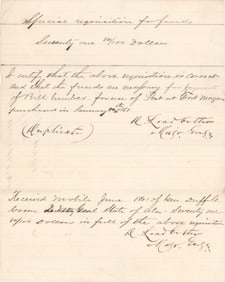 Special requisition for funds
Seventy one 10/100 Dollars
I certify that the above requisition is correct
and that the funds are necessary for payment
of Bill lumber for use of Fort at Fort Morgan
purchased in January 1861
D. Leadbetter
(Duplicate) Major Engs
Received Mobile June 1861 of
State of Ala. Seventy one
10/100 Dollars in full of the above requisition
D. Leadbetter
Major Engs